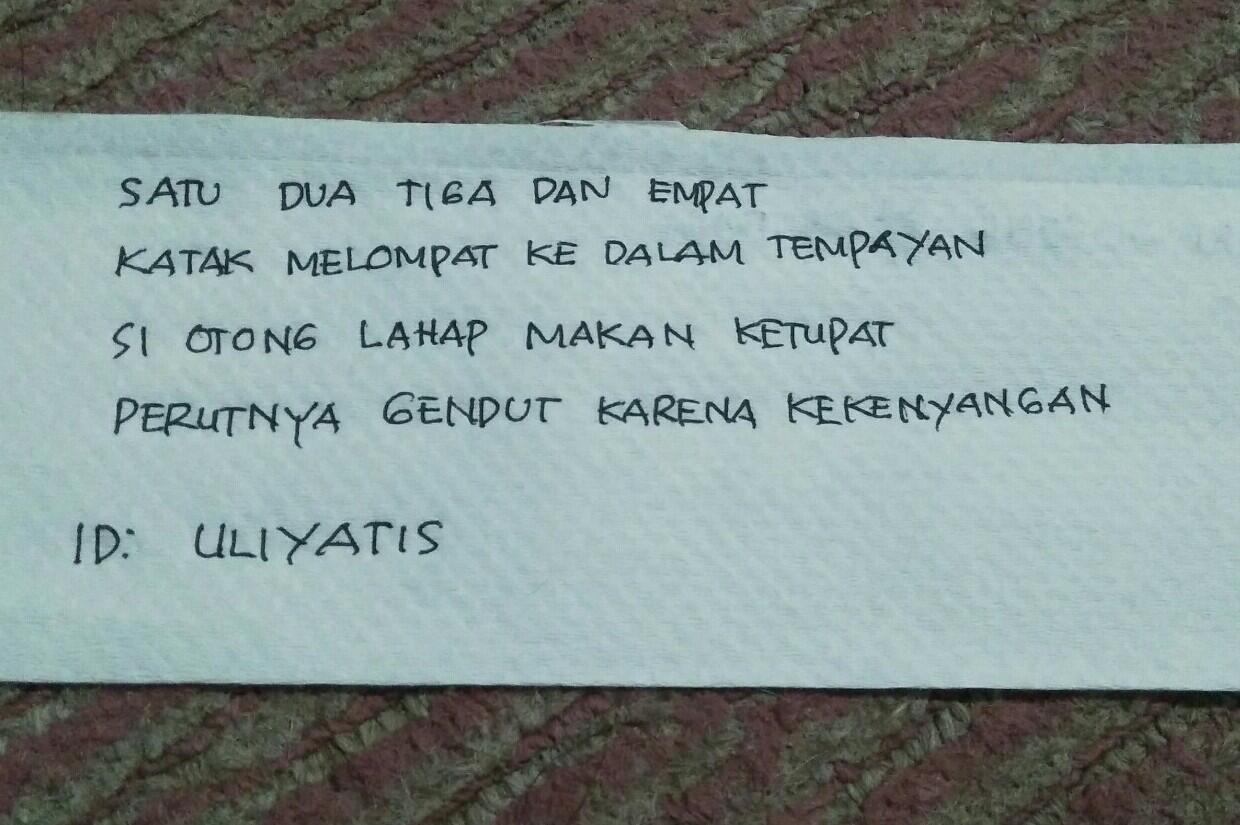 SATU DUA TIGA DAN EMPAT
KATAK MELOMPAT KE DALAM TEMPAYAN
SI OTONG LAHAP MAKAN KETUPAT
PERUTNYA GENDUT KARENA KEKENYANGAN
ID: ULIYATIS